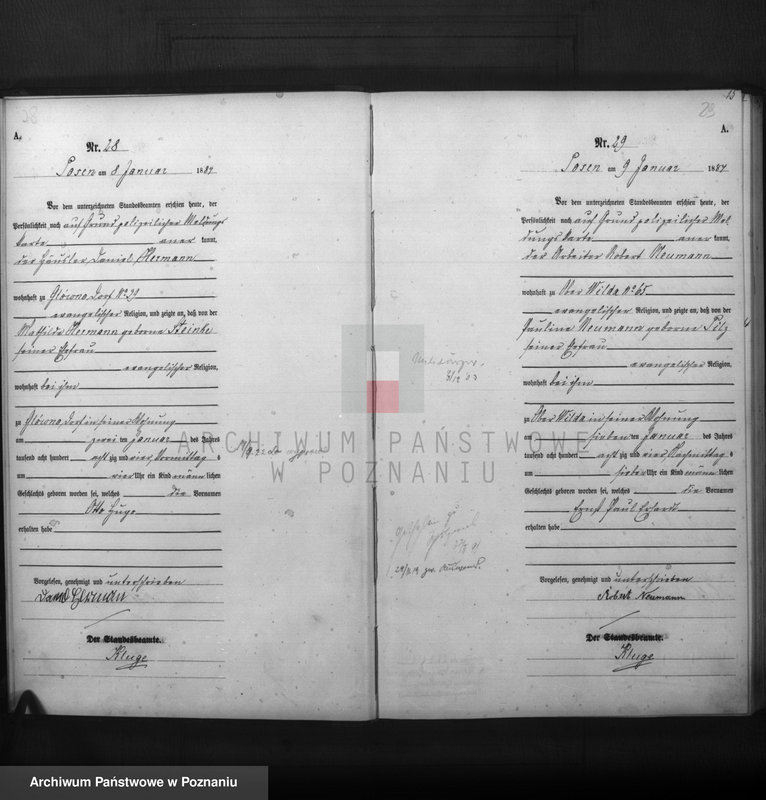 A.
Nr. 28
Posen am 8 Januar 1884
Vor dem unterzeichneten Standesbeamten erschien heute, der
Persönlichkeit nach auf Grund polizeilicher Meldungs
karte aner kannt,
der Häusler Daniel Hermann
wohnhaft zu Glowno, Dorf No 21
evangelischer Religion, und zeigte an, daß von der
Mathilde Hermann geborne Steinke
seiner Ehefrau
evangelischer Religion,
wohnhaft bei ihm
zu Glowno, Dorf in seiner Wohnung
am zwei ten Januar des Jahres
tausend acht hundert acht zig und vier, Vormittag s
um vier Uhr ein Kind männ lichen
Geschlechts geboren worden sei, welches die Vornamen
Otto Hugo
erhalten habe
Vorgelesen, genehmigt und unterschrieben
Daniel Herman
Der Standesbeamte.
Kluge
15
29
A.
Nr. 29
Posen am 9 Januar 1884
Vor dem unterzeichneten Standesbeamten erschien heute, der
Persönlichkeit nach auf Grund polizeilicher Mel
dungskarte aner kannt,
der Arbeiter Robert Neumann
wohnhaft zu Ober Wilda No 65
evangelischer Religion, und zeigte an, daß von der
Pauline Neumann geborne Pilz
seiner Ehefrau
evangelischer Religion,
wohnhaft bei ihm
zu Ober Wilda in seiner Wohnung
am sieben ten Januar des Jahres
tausend acht hundert acht zig und vier, Nachmittag s
um sieben Uhr ein Kind männ lichen
Geschlechts geboren worden sei, welches die Vornamen
Ernst Paul Erhard
erhalten habe
Vorgelesen, genehmigt und unterschrieben
Robert Neumann
Der Standesbeamte.
Kluge
ARCHIWUM PAŃSTWOWE
W POZNANIU
Archiwum Państwowe w Poznaniu